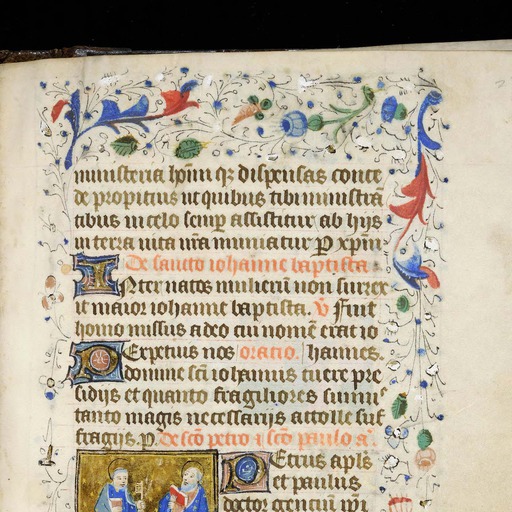 ministeria hoim qz dispensas conce
de propitius ut quibus tibi ministra
tibus in celo semp assistitur ab hys
in terra uita nra muniatur P xpm
De sancto iohanne baptista
Inter natos mulierū non surrex
it maior iohanne baptista. v Fuit
homo missus adeo cui nomē erat io
Perpetuis nos oratio. hannes.
domine sci iohannis tuere pre
sidijs et quanto fragiliores sumu
tanto magis necessarijs attolle suf
fragijs. P. De sco petro i sco paulo a.
Petrus apls
et paulus
doctor gentiū ipi